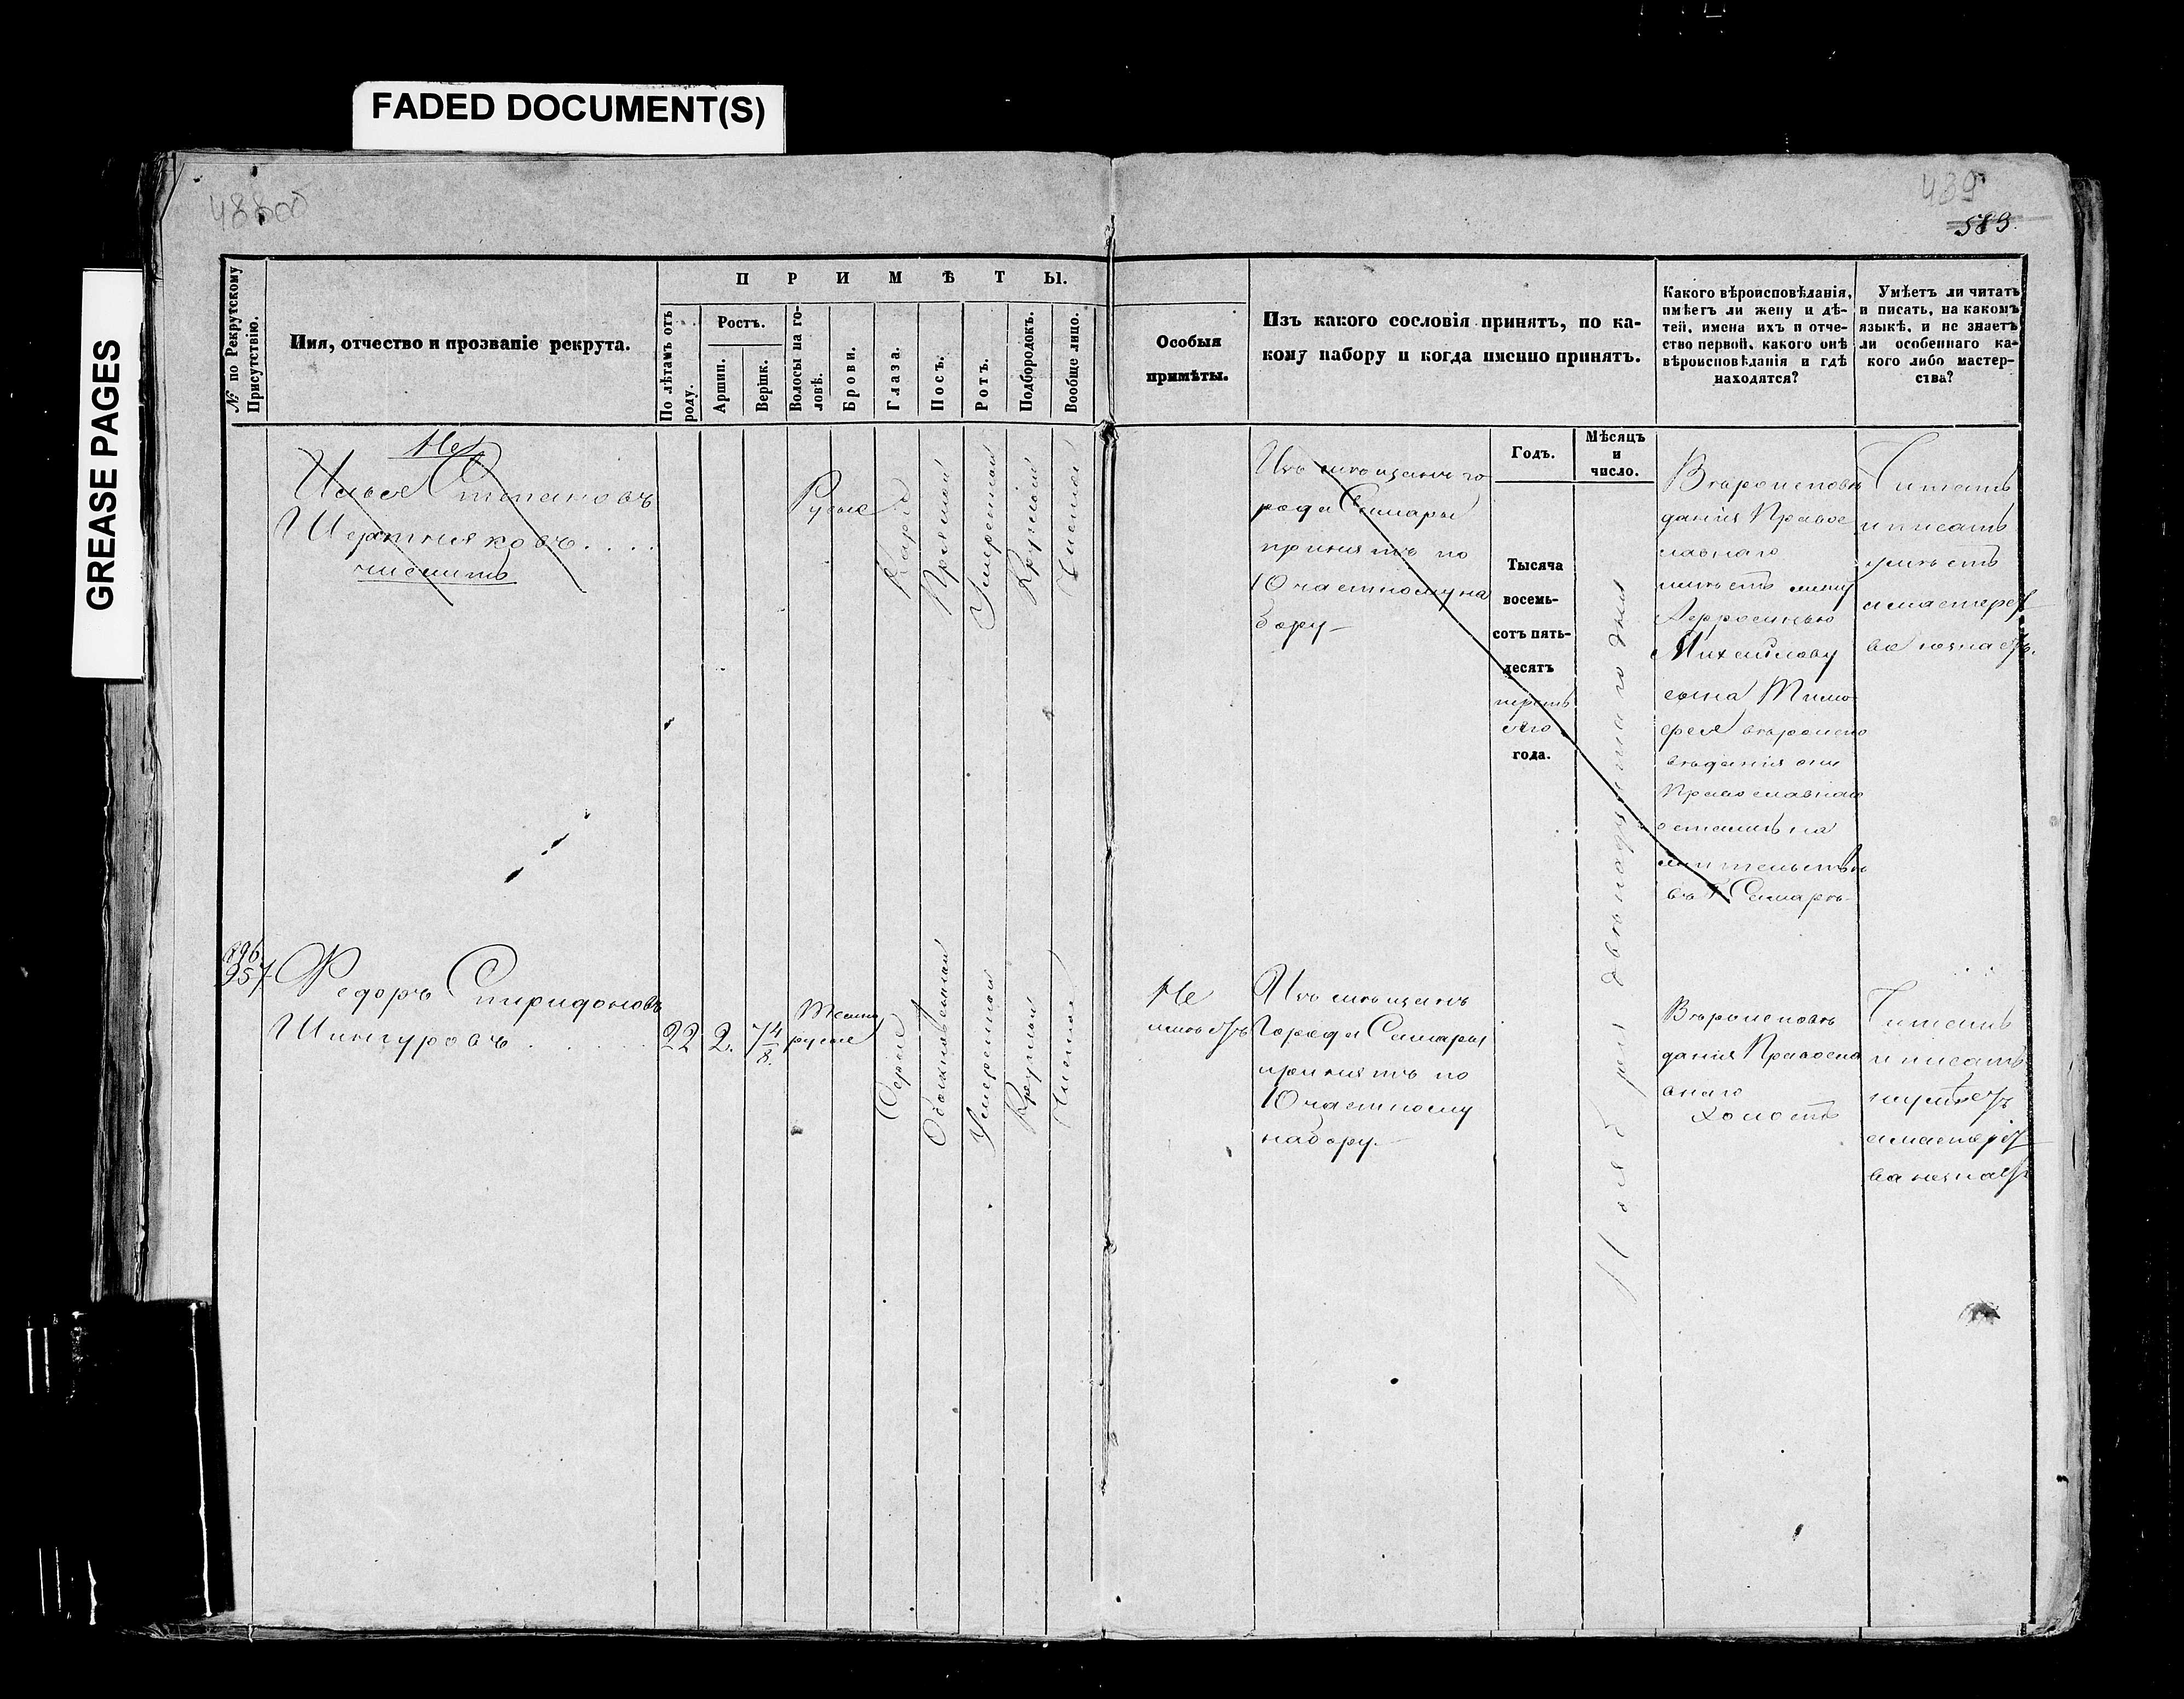 FADED DOCUMENT(S)
GREASE PAGES
439
583.
№ по Рекрутскому Присутствію.
Имя, отчество и прозваніе рекрута.
П Р И М Ѣ Т Ы.
По лѣтамъ отъ роду.
Ростъ.
Аршин.
Вершк.
Волосы на го-
ловѣ.
Брови.
Глаза.
Носъ.
Ротъ.
Подбородокъ.
Вообще лицо.
Особыя
примѣты.
Изъ какого сословія принятъ, по ка-
кому набору и когда именно принятъ.
Какого вѣроисповѣданія,
имѣетъ ли жену и дѣ-
тей, имена ихъ и отче-
ство первой, какого онѣ
вѣроисповѣданія и гдѣ
находятся?
Умѣетъ ли читать
и писать, на какомъ
языкѣ, и не знаетъ
ли особеннаго ка-
кого либо мастер-
ства?
Годъ.
Мѣсяцъ
и
число.
Не
Илья Степановъ
Шерстняковъ. . . .
числить
Русые
Каріе
Прямой
Умеренной
Круглой
Чистое
Изъ мѣщанъ го
рода Самары
принятъ по
10 частному на
бору
Тысяча
восемь-
сотъ пять-
десятъ
третьяго
года.
Ноября двенадцатаго дня
Вѣроисповѣ
данія Правос
лавнаго
имѣетъ жену
Афросинью
Михайлову
сына Тимо
фея вѣроиспо
вѣданія они
Православнаго
остались на
жительствѣ
въ г Самарѣ
Читать
и писать
умѣетъ
а мастерст
ва незнаетъ.
196.
957
Федоръ Спиридоновъ
Шингуровъ . . . . .
22
2.
7 4/8.
Темно
русые
Серые
Обыкновенный
Умеренной
Круглый
Чистое
Не
имѣетъ
Изъ мѣщанъ
Города Самары
принятъ по
10 частному
набору.
Вѣроисповѣ
данія Правосла
внаго
холостъ
Читать
и писать
неумѣетъ
а мастерст
ва незнаетъ